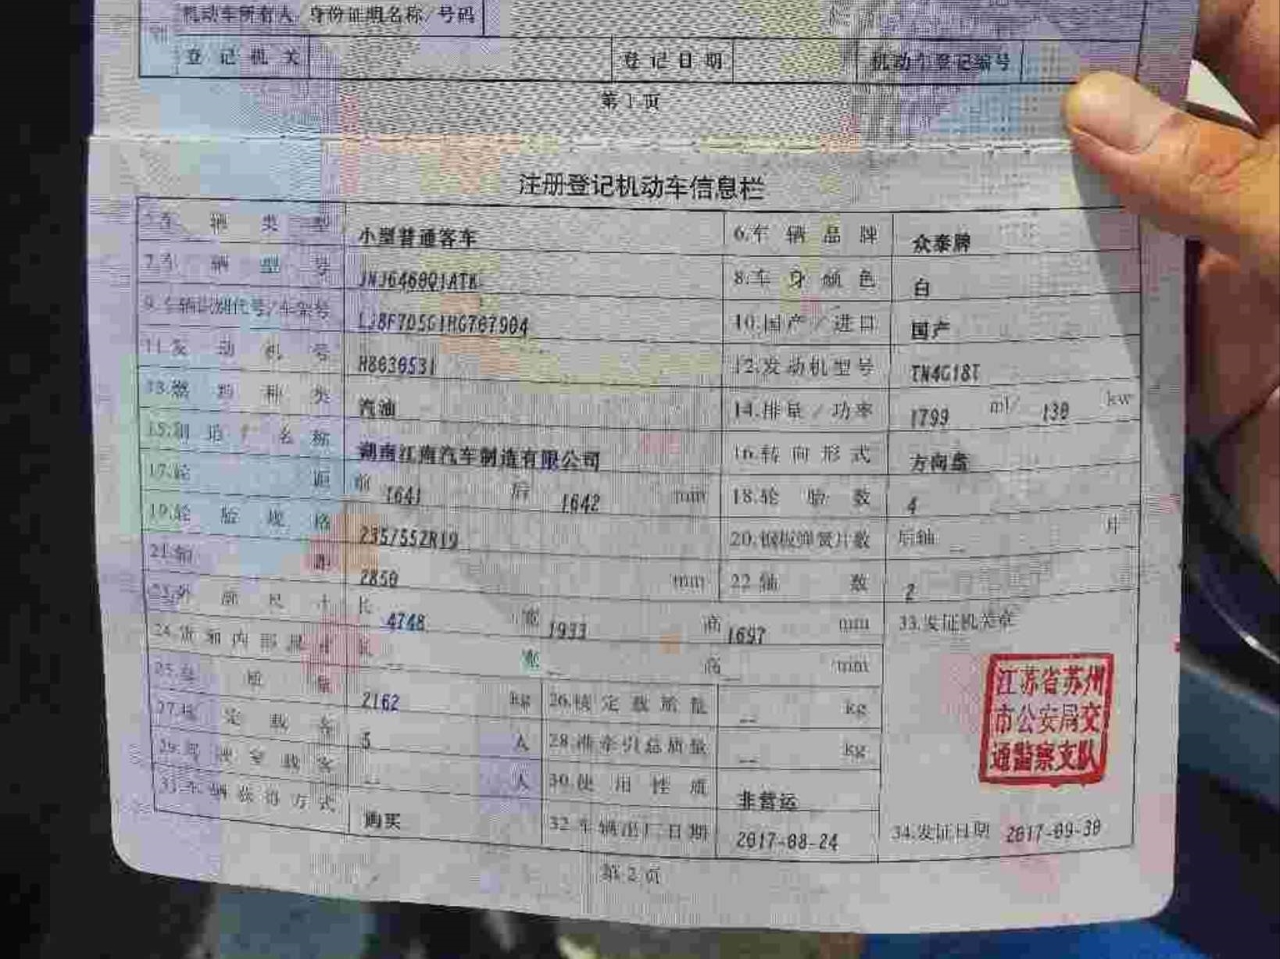 机动车所有人/身份证明名称/号码
登记机关 登记日期 机动车登记编号
第1页
注册登记机动车信息栏
5.车辆类型 小型普通客车 6.车辆品牌 众泰牌
7.车辆型号 JNJ6460Q1ATK 8.车身颜色 白
9.车辆识别代号/车架号 10.国产/进口 国产
11.发动机号 H8030531 12.发动机型号 TN4G18T
13.燃料种类 汽油 14.排量/功率 1799 ml/ 130 kw
15.制造厂名称 湖南江南汽车制造有限公司 16.转向形式 方向盘
17.轮距 前 1641 后 1642 mm 18.轮胎数 4
19.轮胎规格 235/55ZR19 20.钢板弹簧片数 后轴 __ 片
21.轴距 2850 mm 22.轴数 2
23.外廓尺寸 长 4748 宽 1933 高 1697 mm 33.发证机关章
24.货箱内部尺寸 长 __ 宽 __ 高 __ mm
江苏省苏州
市公安局交
通警察支队
25.总质量 2162 kg 26.核定载质量 -- kg
27.核定载客 5 人 28.准牵引总质量 -- kg
29.驾驶室载客 -- 人 30.使用性质 非营运
31.车辆获得方式 购买 32.车辆出厂日期 2017-08-24 34.发证日期 2017-09-30
第2页